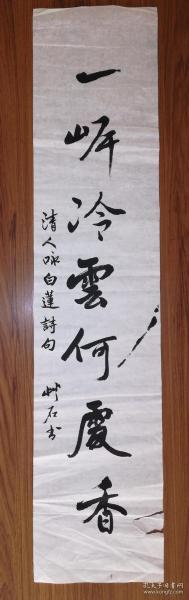 一岸冷雲何處香
清人咏白蓮詩句
艸石书
孔夫子旧书网
www.kongfz.com